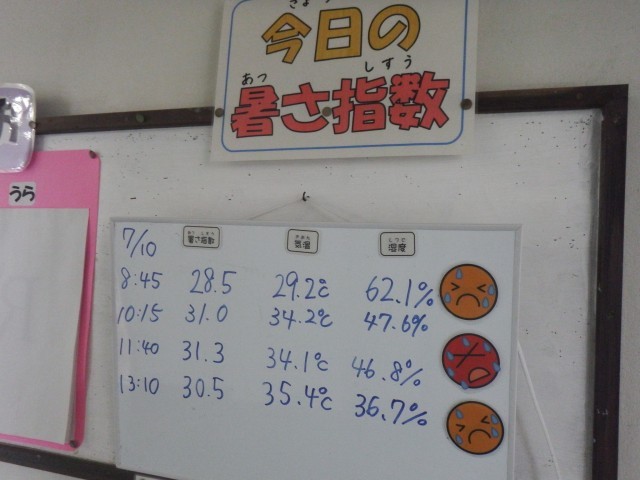 きょう
今日の
あつ しすう
暑さ指数
うら
7/10 暑さ指数 気温 湿度
8:45 28.5 29.2℃ 62.1%
10:15 31.0 34.2℃ 47.6%
11:40 31.3 34.1℃ 46.8%
13:10 30.5 35.4℃ 36.7%